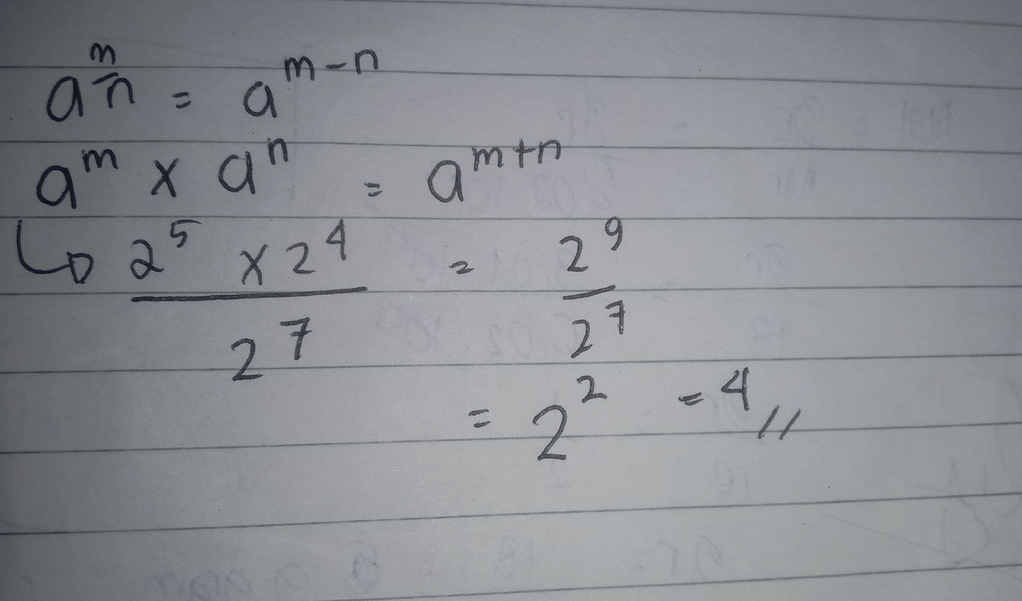 a^(m/n) = a^(m-n)
a^m x a^n = a^(m+n)
↳ (2^5 x 2^4)/(2^7) = 2^9/2^7
= 2^2 = 4 //